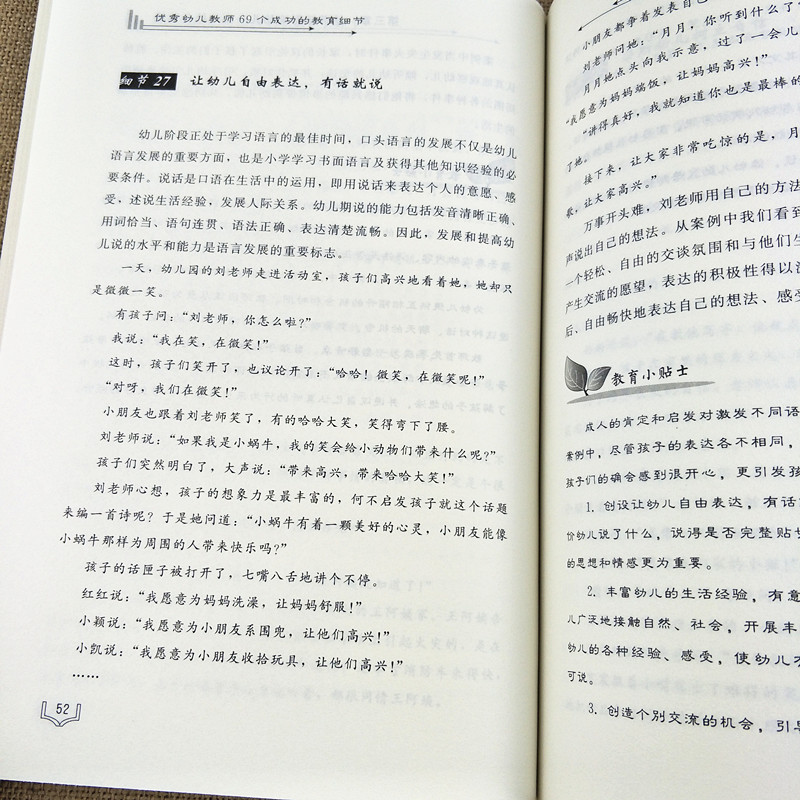 优秀幼儿教师69个成功的教育细节
细节27 让幼儿自由表达，有话就说
幼儿阶段正处于学习语言的最佳时间，口头语言的发展不仅是幼儿
语言发展的重要方面，也是小学学习书面语言及获得其他知识经验的必
要条件。说话是口语在生活中的运用，即用说话来表达个人的意愿、感
受，述说生活经验，发展人际关系。幼儿期说的能力包括发音清晰正确、
用词恰当、语句连贯、语法正确、表达清楚流畅。因此，发展和提高幼
儿说的水平和能力是语言发展的重要标志。
一天，幼儿园的刘老师走进活动室，孩子们高兴地看着她，她却只
是微微一笑。
有孩子问：“刘老师，你怎么啦？”
我说：“我在笑，在微笑！”
这时，孩子们笑开了，也议论开了：“哈哈！微笑，在微笑呢！”
“对呀，我们在微笑！”
小朋友也跟着刘老师笑了，有的哈哈大笑，笑得弯下了腰。
刘老师说：“如果我是小蜗牛，我的笑会给小动物们带来什么呢？”
孩子们突然明白了，大声说：“带来高兴，带来哈哈大笑！”
刘老师心想，孩子的想象力是最丰富的，何不启发孩子就这个话题
来编一首诗呢？于是她问道：“小蜗牛有着一颗美好的心灵，小朋友能像
小蜗牛那样为周围的人带来快乐吗？”
孩子的话匣子被打开了，七嘴八舌地讲个不停。
红红说：“我愿意为妈妈洗澡，让妈妈舒服！”
小颖说：“我愿意为小朋友系围兜，让他们高兴！”
小凯说：“我愿意为小朋友收拾玩具，让他们高兴！”
……
52
小朋友都争着发表自己
刘老师问她：“月月，你听到什么了
月月她点头向我示意，过了一会儿
“我愿意为妈妈端饭，让妈妈高兴！”
“讲得真好，我就知道你也是最棒的
了她。
接下来，让大家非常吃惊的是，月
歌，让大家高兴。”
万事开头难，刘老师用自己的方法
声说出自己的想法。从案例中我们看到
一个轻松、自由的交谈氛围和与他们生
产生交流的愿望，表达的积极性得以
后、自由畅快地表达自己的想法、感受
教育小贴士
成人的肯定和启发对激发不同语
案例中，尽管孩子的表达各不相同，
孩子们的确会感到很开心，更引发孩
1. 创设让幼儿自由表达，有话
价幼儿说了什么，说得是否完整贴切
的思想和情感更为重要。
2. 丰富幼儿的生活经验，有意
儿广泛地接触自然、社会，开展丰
幼儿的各种经验、感受，使幼儿才
可说。
3. 创造个别交流的机会，引导